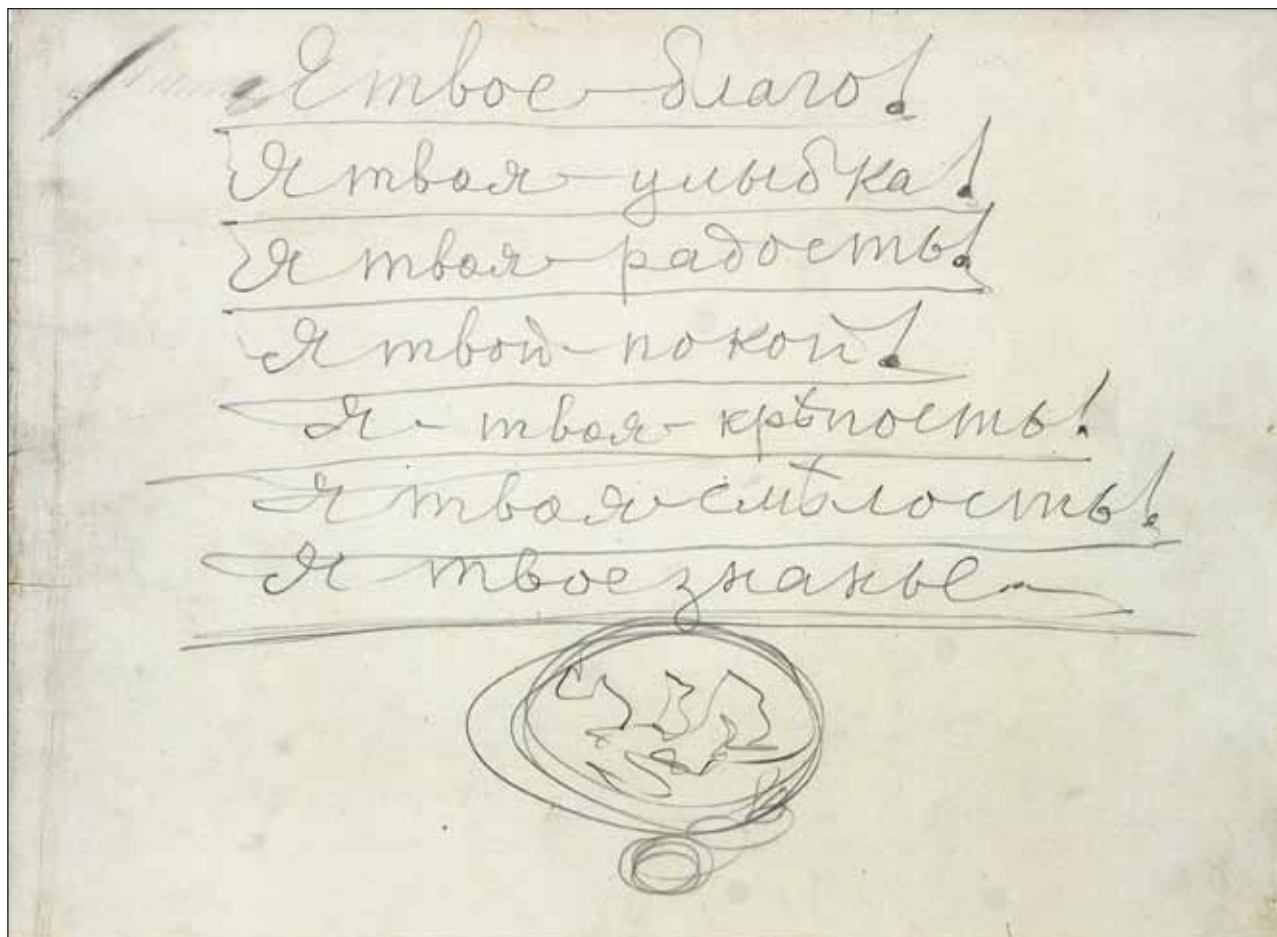 Я твое-благо!
Я твоя-улыбка!
Я твоя-радость!
Я твой-покой!
Я-твоя-крѣпость!
Я твоя-смѣлость!
Я твое знанье